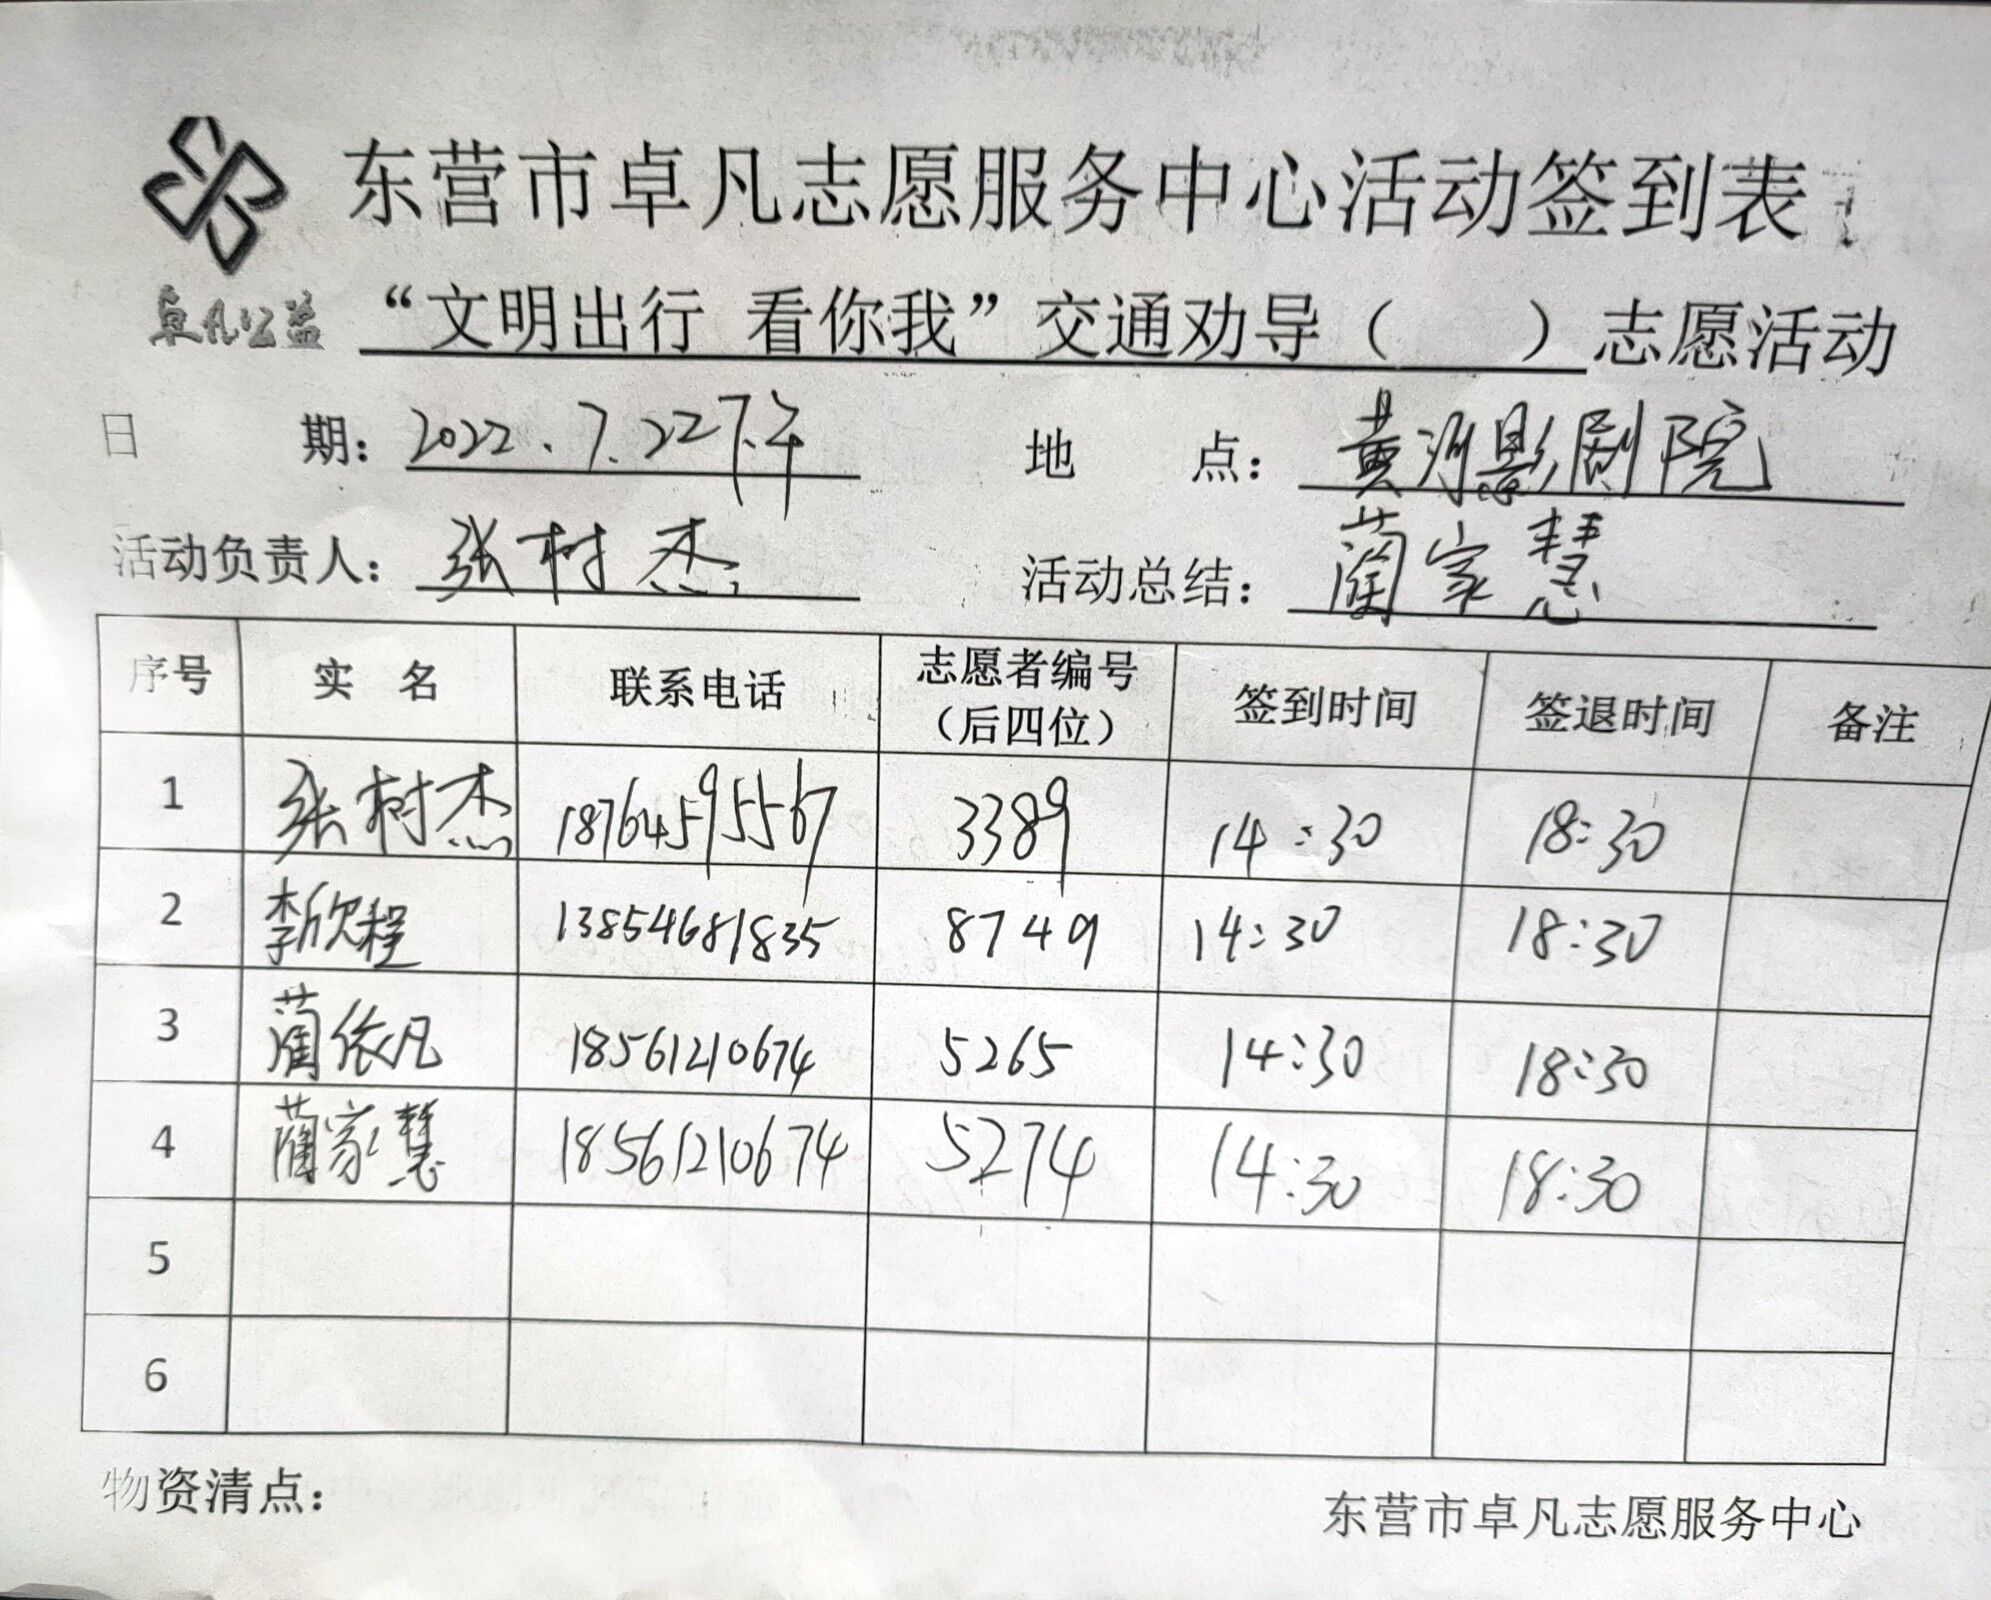 东营市卓凡志愿服务中心活动签到表
卓凡公益
“文明出行 看你我”交通劝导（ ）志愿活动
日 期：2022.7.22下午 地 点：黄河影剧院
活动负责人：张树杰 活动总结：蔺家慧
序号 实 名 联系电话 志愿者编号（后四位） 签到时间 签退时间 备注
1 张树杰 18764595567 3389 14:30 18:30
2 李欣程 13854681835 8749 14:30 18:30
3 蔺依凡 18561210674 5265 14:30 18:30
4 蔺家慧 18561210674 5274 14:30 18:30
5
6
物资清点：
东营市卓凡志愿服务中心